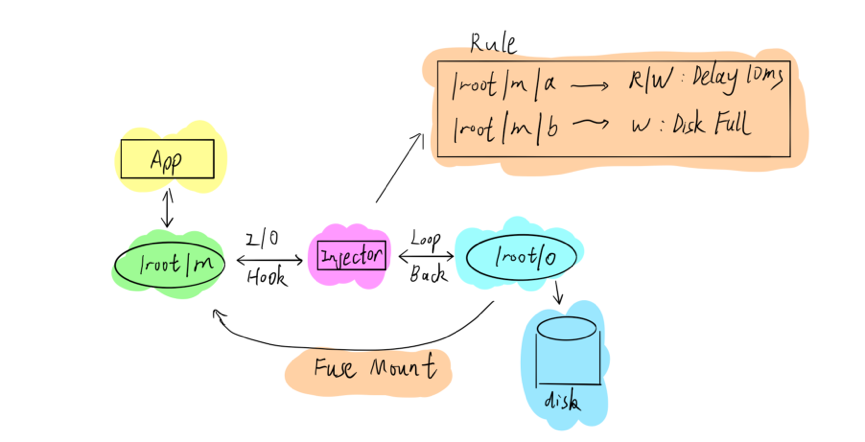 Rule
/root/m/a → R/W : Delay 10ms
/root/m/b → W : Disk Full
App
/root/m
I/O
Hook
Injector
Loop
Back
/root/o
Fuse Mount
disk